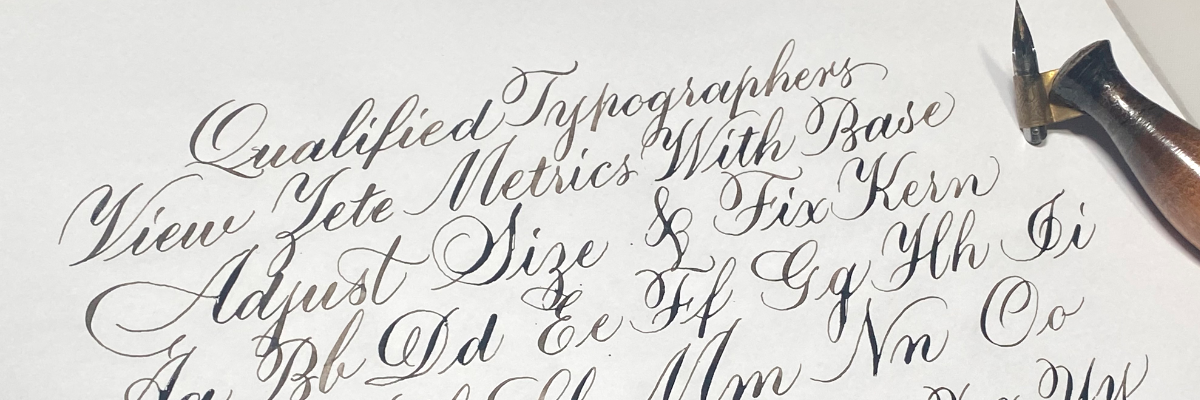 Qualified Typographers
View Zete Metrics With Base
Adjust Size & Fix Kern
Aa Bb Dd Ee Ff Gg Hh Ii
Mm Nn Oo
Yy